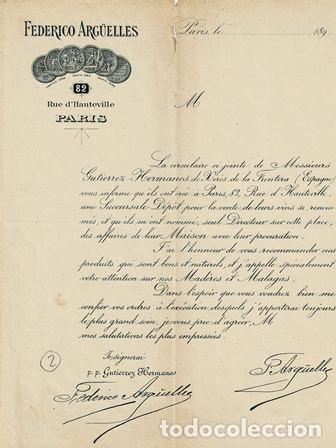 FEDERICO ARGÜELLES
Paris, le 189
82
Rue d'Hauteville
PARIS
M
La circulaire ci jointe de Messieurs
Gutierrez Hermanos de Xérès de la Frontera (Espagne)
vous informe qu'ils ont créé à Paris, 82, Rue d'Hauteville
une Succursale Dépôt pour la vente de leurs vins si renom-
més, et qu'ils m'ont nommé, seul Directeur sur cette place,
des affaires de leur Maison avec leur procuration.
J'ai l'honneur de vous recommander nos
produits qui sont bons et naturels, et j'appelle spécialement
votre attention sur nos Madères et Malagas.
Dans l'espoir que vous voudrez bien me
confier vos ordres à l'exécution desquels j'apporterai toujours
le plus grand soin, je vous prie d'agréer, M
mes salutations les plus empressées.
2
Je signerai
p.p. Gutierrez Hermanos
Federico Argüelles
F. Argüelles
todocoleccion.net